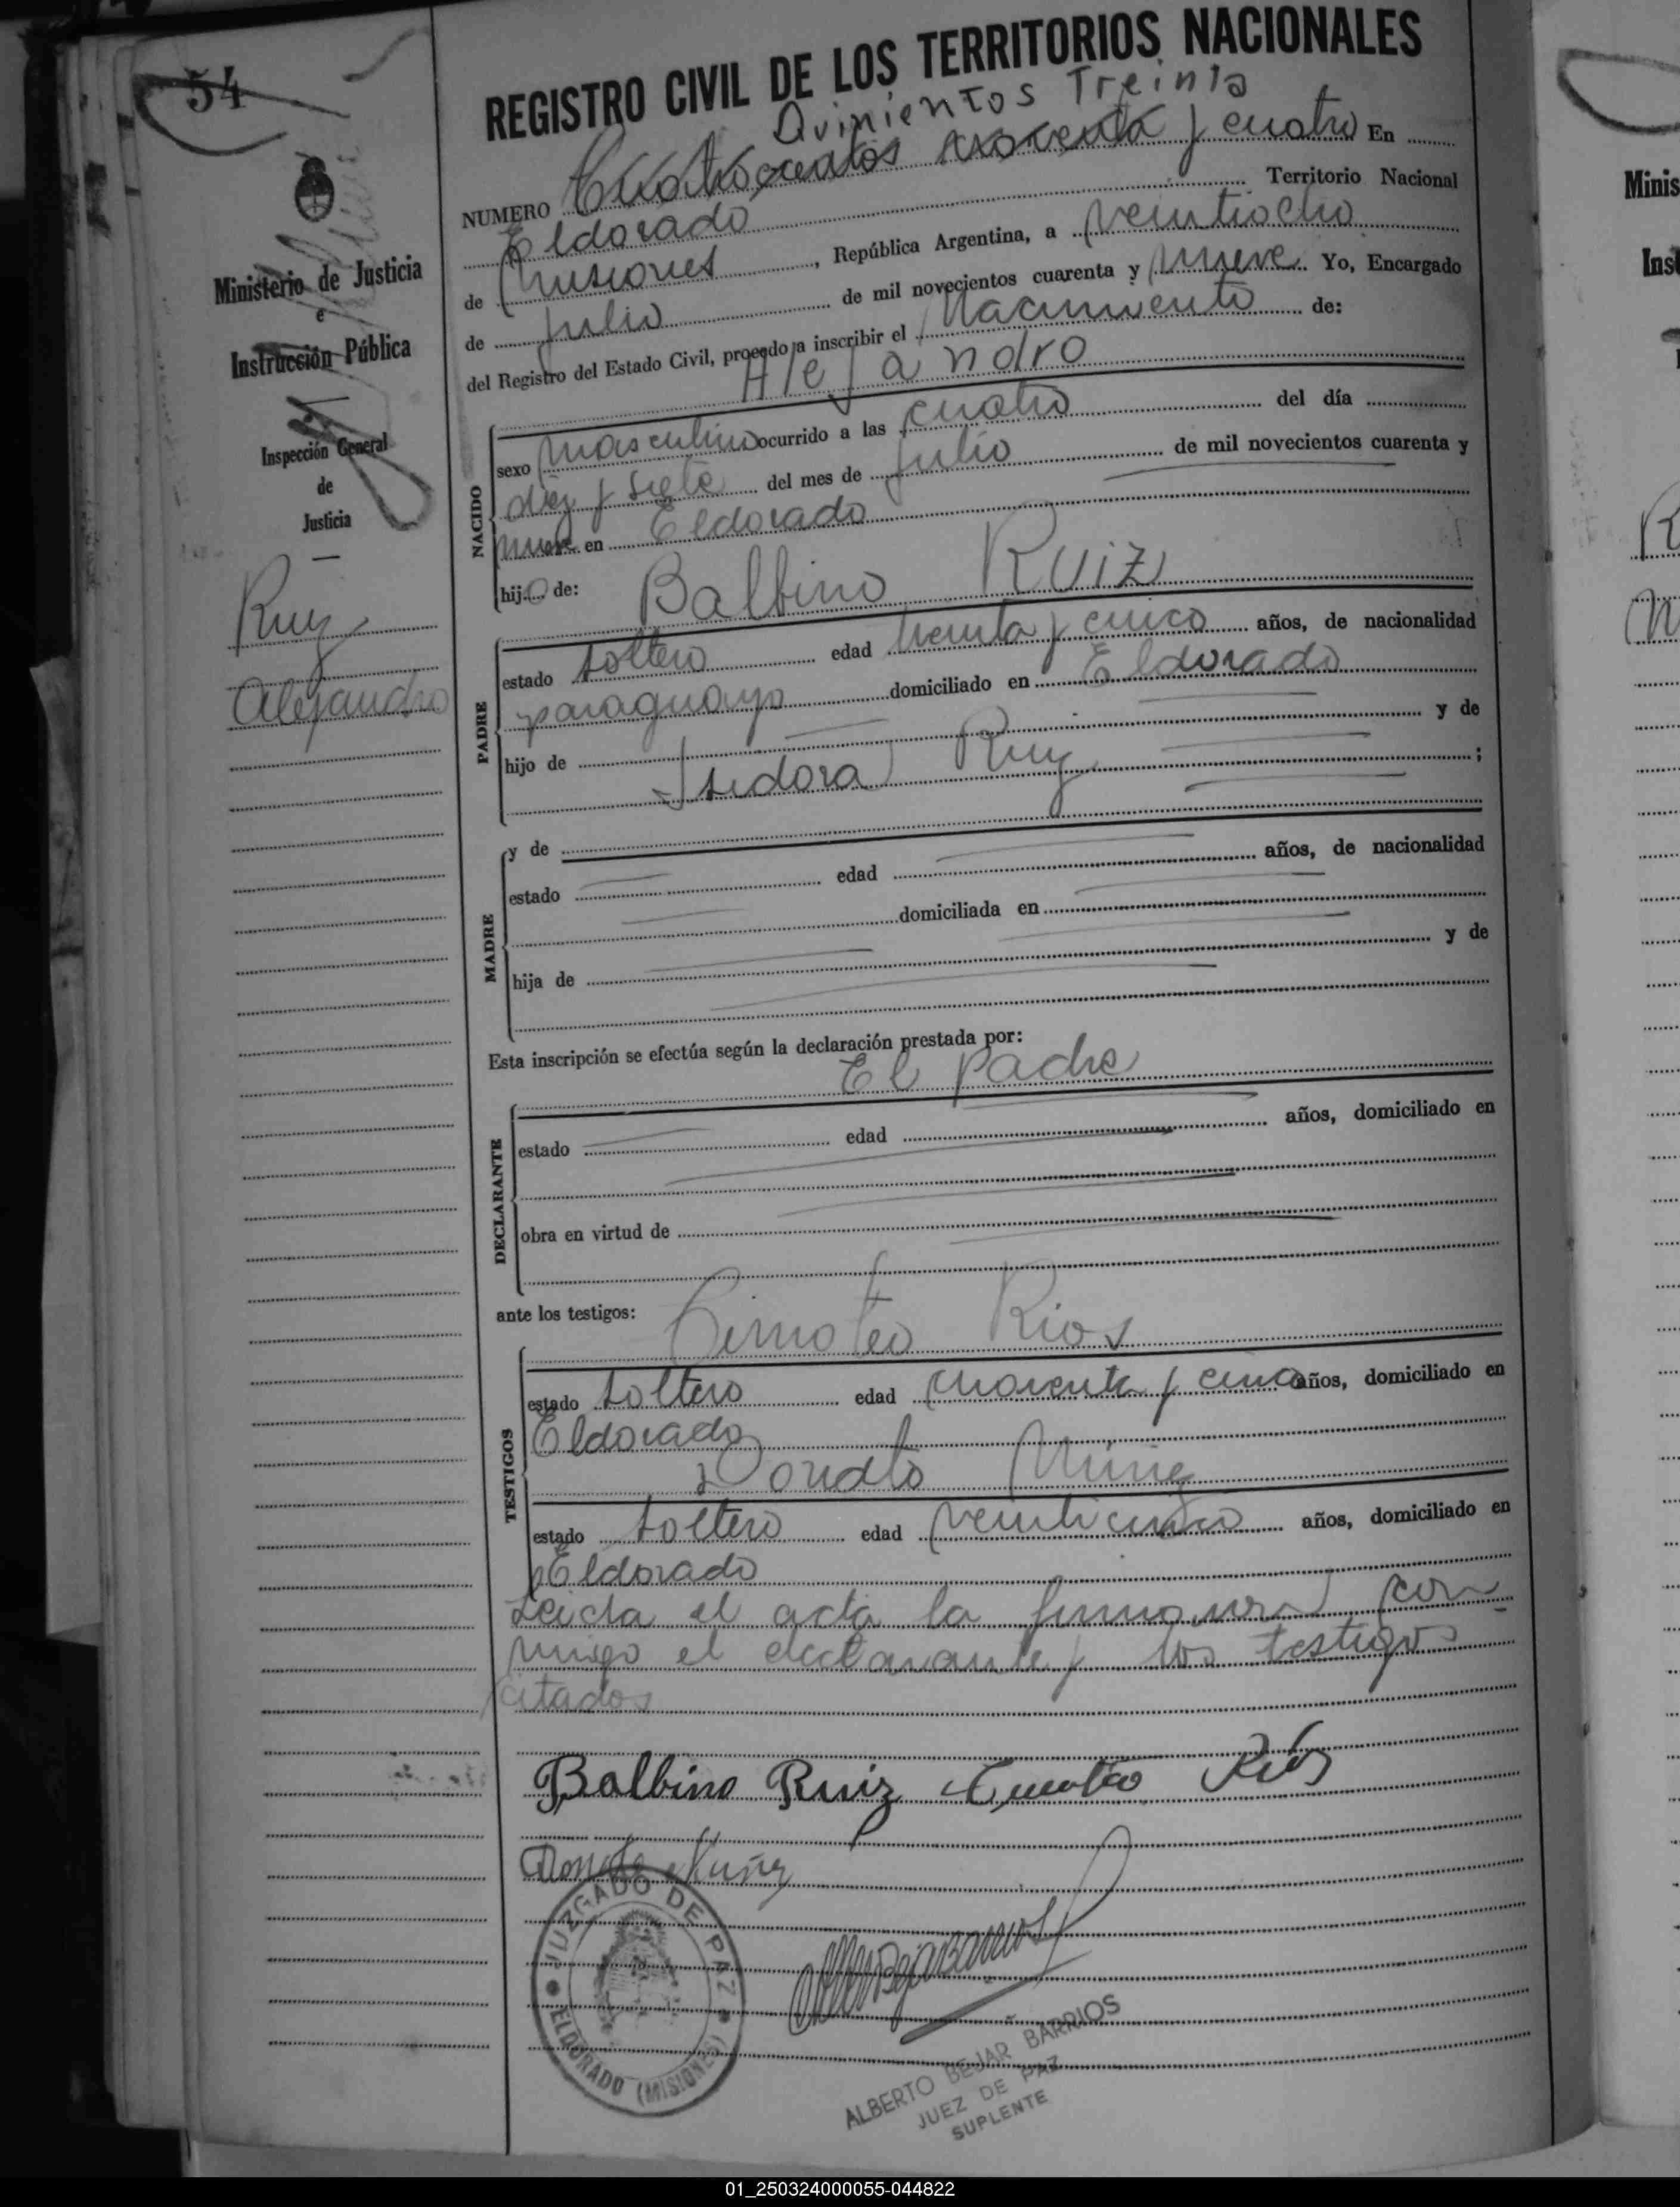 54
REGISTRO CIVIL DE LOS TERRITORIOS NACIONALES
Quinientos Treinta
NUMERO Cuatrocientos noventa y cuatro En
Eldorado Territorio Nacional
de Misiones, República Argentina, a veintiocho
de julio de mil novecientos cuarenta y nueve. Yo, Encargado
del Registro del Estado Civil, procedo a inscribir el Nacimiento de:
Alejandro
Ministerio de Justicia
e
Instrucción Pública
Inspección General
de
Justicia
Ruiz
Alejandro
NACIDO
sexo masculino ocurrido a las cuatro del día
diez y siete del mes de julio de mil novecientos cuarenta y
nueve en Eldorado
hijo de: Balbino Ruiz
PADRE
estado soltero edad treinta y cinco años, de nacionalidad
paraguayo domiciliado en Eldorado
hijo de y de
Isidora Ruiz ;
MADRE
y de
estado edad años, de nacionalidad
domiciliada en
hija de y de
Esta inscripción se efectúa según la declaración prestada por:
El padre
DECLARANTE
estado edad años, domiciliado en
obra en virtud de
ante los testigos:
Timoteo Rios
TESTIGOS
estado soltero edad cuarenta y cinco años, domiciliado en
Eldorado
Donato Núñez
estado soltero edad veinticinco años, domiciliado en
Eldorado
Leída el acta la firmaron con-
migo el declarante y los testigos
citados
Balbino Ruiz Timoteo Ríos
Donato Nuñez
JUZGADO DE PAZ
ELDORADO (MISIONES)
ALBERTO BEJAR BARRIOS
JUEZ DE PAZ
SUPLENTE
Minis
Inst
01_250324000055-044822